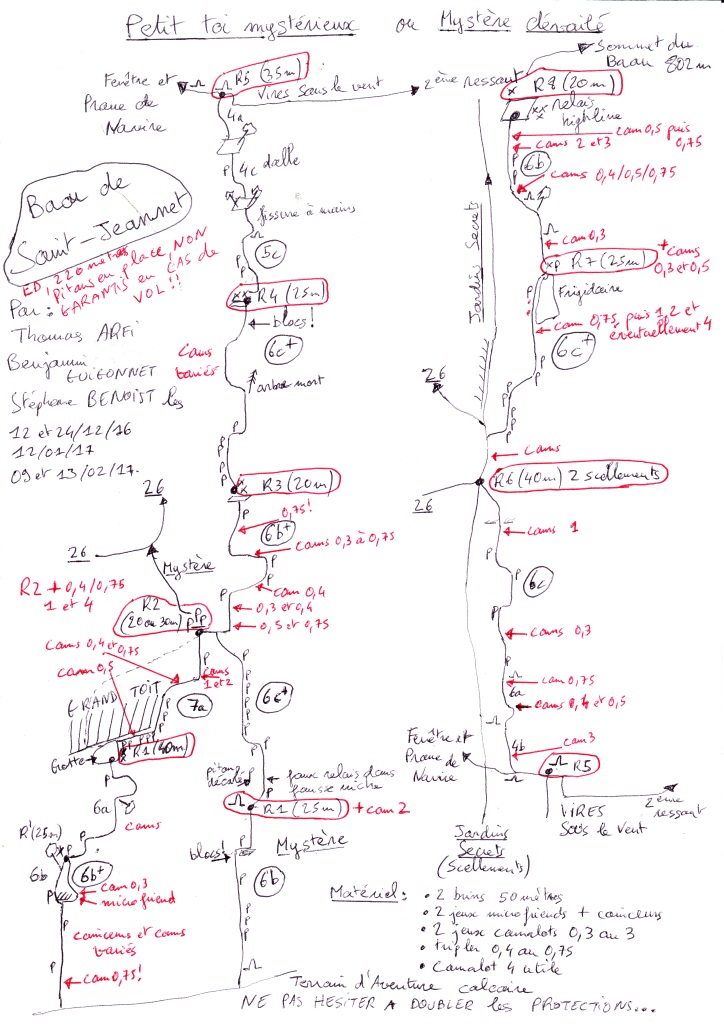 Petit toi mystérieux ou Mystère dévoilé
Fenêtre et
Proue de
Navire
R5 (35m)
Vires sous le vent
2ème ressaut
4a
dalle
4c
P
fissure à mains
5c
P
P
R4 (25m)
blocs!
6c+
Cams
variés
arbre mort
P
P
P
R3 (20m)
0,75!
6b+
cams 0,3 à 0,75
P
P
cam 0,4
0,3 et 0,4
0,5 et 0,75
Baou de
Saint-Jeannet
ED, 220 mètres
Pitons en place, NON
GARANTIS en CAS de
VOL!!
Par:
Thomas ARFI
Benjamin
GUIGONNET
Stéphane BENOIST les
12 et 24/12/16
12/01/17
09 et 13/02/17.
26
26
Mystère
R2 + 0,4/0,75
1 et 4
R2
(20 ou 30m)
PPP
cams 0,4 et 0,75
cam 0,5
cams
1 et 2
GRAND TOIT
7a
P
P
P
6c+
P
P
P
P
P
P
R1 (40m)
Grotte
P
6a
cams
R' (25m)
P
P
6b
6b+
P
cam 0,3
microfriend
coinceurs et cams
variés
P
P
cam 0,75!
pitons
décalés
faux relais dans
fausse niche
R1 (25m) + cam 2
Mystère
blocs!
6b
P
P
P
P
Sommet du
Baou 802m
R8 (20m)
relais
highline
cam 0,5 puis
0,75
cams 2 et 3
6b
P
P
P
cams 0,4/0,5/0,75
cam 0,3
R7 (25m)
+ cams
0,3 et 0,5
Frigidaire
cam 0,75 puis 1,2 et
éventuellement 4
6c+
P
P
P
P
P
Jardins Secrets
26
26
cams
R6 (40m) 2 scellements
cams 1
P
P
P
6c
cams 0,3
P
P
cam 0,75
6a
cams 0,4 et 0,5
4b
cam 3
Fenêtre et
Proue de
Navire
R5
VIRES
Sous le Vent
2ème
ressaut
Jardins
Secrets
(Scellements)
Matériel:
• 2 brins 50 mètres
• 2 jeux microfriends + coinceurs
• 2 jeux camalots 0,3 au 3
• tripler 0,4 au 0,75
• Camalot 4 utile
Terrain d'Aventure calcaire
NE PAS HESITER A DOUBLER les PROTECTIONS...